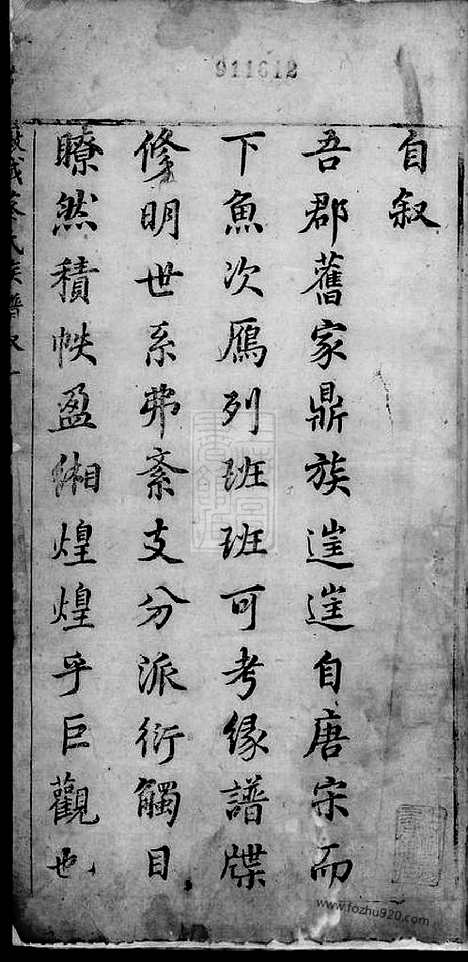 911612
自叙
吾郡舊家鼎族𨓹𨓹自唐宋而
下魚次鴈列班班可考緣譜牒
修明世系弗紊支分派衍觸目
瞭然積帙盈緗煌煌乎巨觀也
氏族譜
www.fozhu920.com